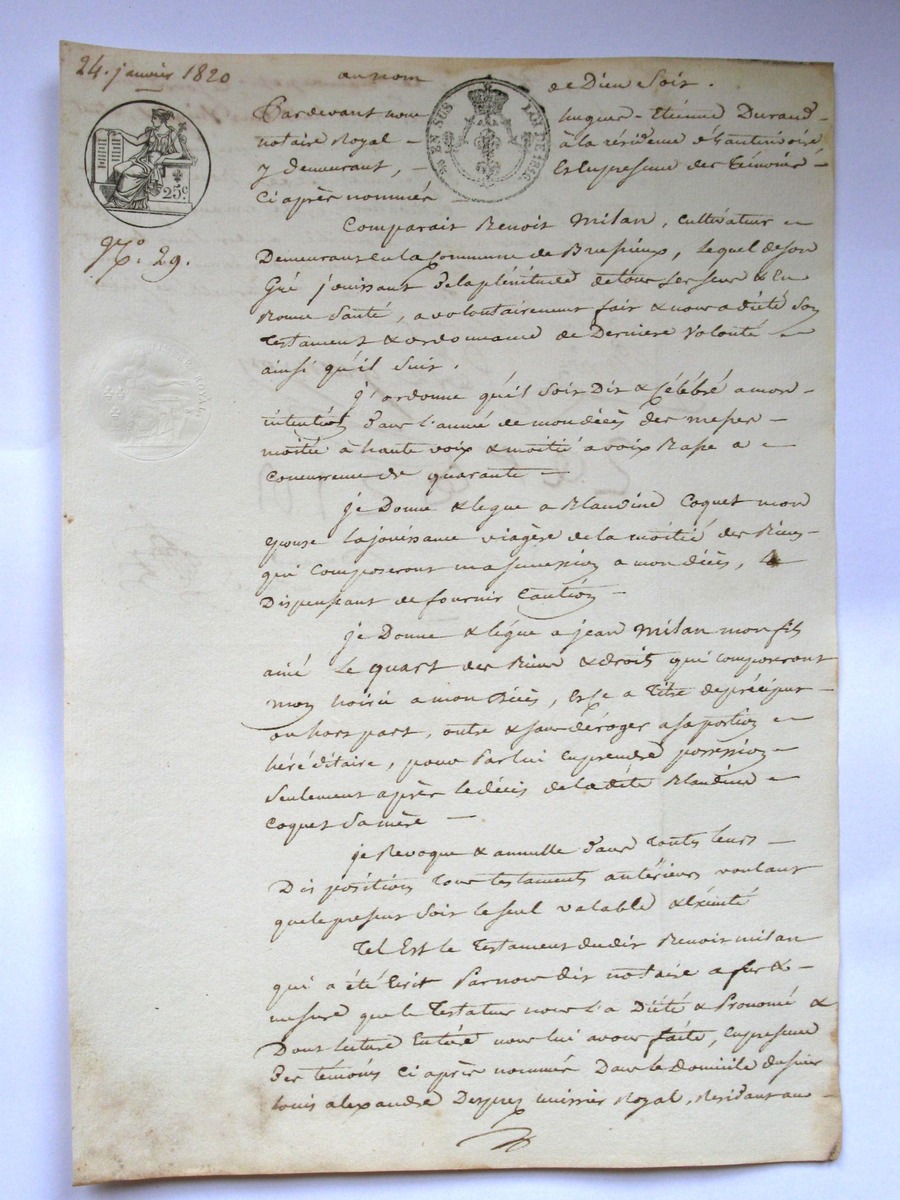 24. janvier 1820
au nom de Dieu Soit.
Pardevant nous hugues-Etienne Durand
notaire Royal - à la résidence de
y demeurant, - Et En presence des témoins -
Ci après nommés
EN SUS
25c.
N.o 29.
Comparait Benoit Milan, Cultivateur -
Demeurant En la Commune de Bressieux, Lequel de son
Gré jouissant de la plénitude de tous Ses Sens & En
Bonne Santé, a volontairement fait & nous a dicté Son
Testament & ordonnance de Derniere Volonté -
ainsi qu'il Suit.
j'ordonne qu'il Soit Dit & Célébré a mon -
intention Dans L'année de mon décès des messes
moitié à haute voix & moitié a voix Basse a -
Concurrence de quarante -
je Donne & legue a Blandine Coquet mon
Epouse La jouissance viagère de la moitié des Biens -
qui Composeront ma succession a mon décès, La
Dispensant de fournir Caution -
je Donne & légue a jean Milan mon fils
ainé Le quart des Biens & droits qui Composeront
mon hoirie a mon Décès, & ce a Titre de préciput -
ou hors part, outre & sans déroger a sa portion -
héréditaire, pour Par lui En prendre possession -
Seulement après le décès de la dite Blandine -
Coquet Sa mère -
je Revoque & annulle Dans Toutes leurs -
Dispositions Tous testaments antérieurs voulant
que le present Soit le seul valable & Exécuté
Tel Est le Testament dudit Benoit milan
qui a été Ecrit Par nous dit notaire a fur & -
mesure que le Testateur nous L'a Dicté & Prononcé &
Dont lecture Entière nous lui avons faite, En presence
Des temoins Ci après nommés Dans le Domicile de sieur
Louis alexandre Despres huissier Royal, Residant au -